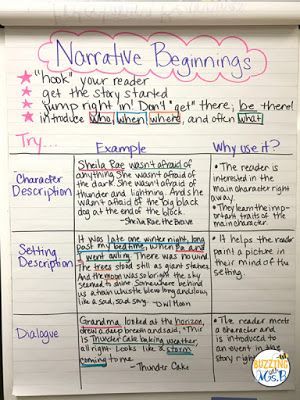 Narrative Beginnings
"hook" your reader
get the story started
jump right in! Don't "get" there; be there!
introduce who, when, where, and often what
Try...
Example
Why use it?
Character
Description
Sheila Rae wasn't afraid of
anything. She wasn't afraid of
the dark. She wasn't afraid of
thunder and lightning. And she
wasn't afraid of the big black
dog at the end of the block.
-Sheila Rae, the Brave
• The reader is
interested in the
main character right
away.
• They learn the impor-
tant traits of the
main character.
Setting
Description
It was late one winter night, long
past my bedtime, when Pa and I
went owling. There was no wind.
The trees stood still as giant statues.
And the moon was so bright the sky
seemed to shine. Somewhere behind
us a train whistle blew, long and low,
like a sad, sad song. -Owl Moon
• It helps the reader
paint a picture in
their mind of the
setting.
Dialogue
Grandma looked at the horizon,
drew a deep breath and said, "This
is Thunder Cake baking weather,
all right. Looks like a storm
coming to me.
-Thunder Cake
• The reader meets
a character and
is introduced to
an event in the
story right
BUZZING
with
Ms. B